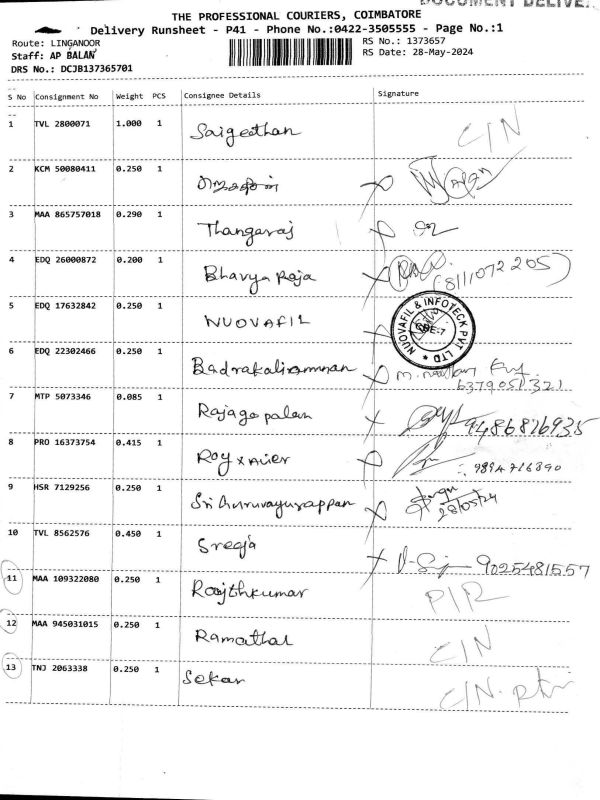 DOCUMENT DELIVE
THE PROFESSIONAL COURIERS, COIMBATORE
Delivery Runsheet - P41 - Phone No.:0422-3505555 - Page No.:1
Route: LINGANOOR
RS No.: 1373657
Staff: AP BALAN
RS Date: 28-May-2024
DRS No.: DCJB137365701
S No Consignment No Weight PCS Consignee Details Signature
1 TVL 2800071 1.000 1 Saigeethan C/N
2 KCM 50080411 0.250 1
3 MAA 865757018 0.290 1 Thangaraj
4 EDQ 26000872 0.200 1 Bhavya Roja (8111072205)
5 EDQ 17632842 0.250 1 NUOVAFIL
NUOVAFIL & INFOTECK PVT LTD
CBE-7
6 EDQ 22302466 0.250 1 Badrakaliamman
6379051321
7 MTP 5073346 0.085 1 Rajagopalan 9486876935
8 PRO 16373754 0.415 1 Roy xavier 9894716890
9 HSR 7129256 0.250 1 Sri Guruvayurappan 28/05/24
10 TVL 8562576 0.450 1 Sreeja 9025481557
11 MAA 109322080 0.250 1 Rajithkumar
12 MAA 945031015 0.250 1 Ramathal C/N
13 TNJ 2063338 0.250 1 Sekar C/N